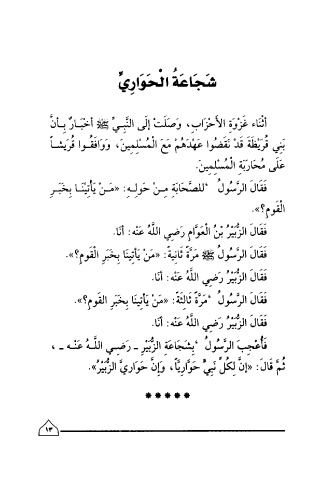 شَجَاعَةُ الْحَوَارِيِّ
أَثْنَاء غَزْوَةِ الأَحْزَابِ، وَصَلَتْ إلَى النَّبِيِّ ﷺ أخبَارٌ بِأنَّ
بَنِي قُرَيْظَةَ قَدْ نَقَضُوا عَهْدَهُمْ مَعَ الْمُسْلِمِينَ، وَوَافَقُوا قُرَيْشاً
عَلَى مُحَارَبَةِ الْمُسْلِمِينَ.
فَقَالَ الرَّسُولُ للصَّحَابَةِ مِنْ حَولِهِ: «مَنْ يَأتِينَا بِخَبَرِ
الْقَومِ؟».
فَقَالَ الزُّبَيْرُ بْنُ الْعَوَّامِ رَضِي اللَّهُ عَنْه: أنَا.
فَقَالَ الرَّسُولُ ﷺ مَرَّةً ثَانِيةً: «مَنْ يَأتِينَا بِخَبَرِ الْقَومِ؟».
فَقَالَ الزُّبَيْرُ رَضِي اللَّهُ عَنْه: أنَا.
فَقَالَ الرَّسُولُ مَرَّةً ثَالثَةً: «مَنْ يَأتِينَا بِخَبَرِ القَومِ؟».
فَقَالَ الزُّبَيْرُ رَضِي اللَّهُ عَنْه: أنَا.
فَأُعْجِبَ الرَّسولُ بِشَجَاعَةِ الزُّبَيْرِ ـ رَضِي اللَّهُ عَنْه ـ ،
ثُمَّ قَالَ: «إنَّ لِكُلِّ نَبِيٍّ حَوَّارِيَّاً، وَإنَّ حَوَارِيَّ الزُّبَيْرُ».
*****
١٣